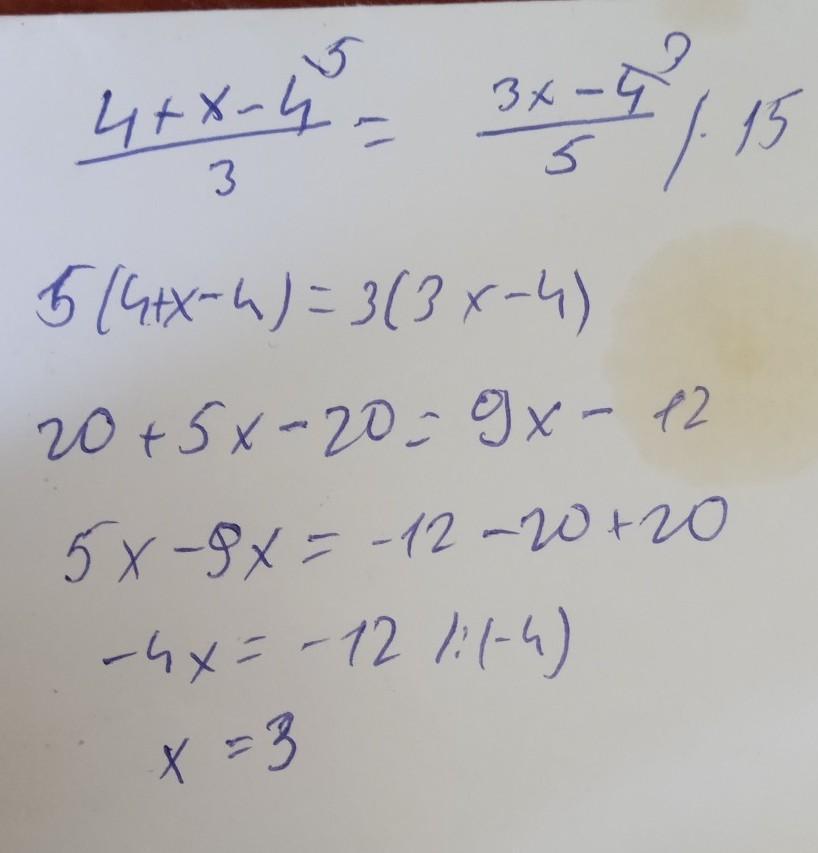 (4+x-4)/3 \5 = (3x-4)/5 \3 /· 15
5(4+x-4)=3(3x-4)
20+5x-20=9x-12
5x-9x=-12-20+20
-4x=-12 /:(-4)
x=3